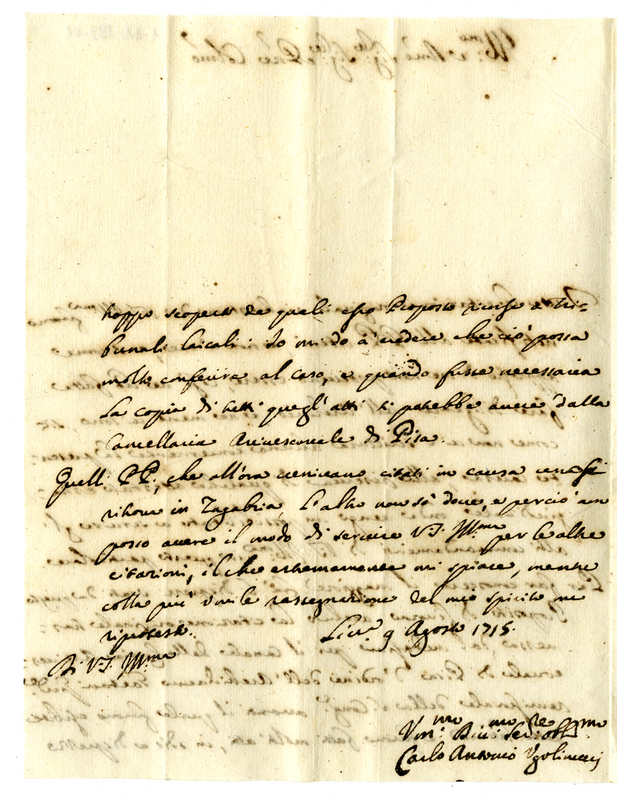 troppo scoperto da quali esso Proposto ricorse a Tri-
bunali laicali: io mi do à credere che ciò possa
molto conferire al caso, e quando fusse necessaria
la copia di tutti quegl'atti si potrebbe avere dalla
Cancellaria Arcivescovale di Pisa.
Quelli PP, che all'ora venivano citati in causa uno si
ritrova in Zagabria, l'altro non sò dove, e perciò non
posso avere il modo di servire V.S. Ill.ma per le altre
citazioni, il che estremamente mi spiace, mentre
colla più umile rassegnazione del mio spirito mi
riprotesto. Liv.o 9 Agosto 1715.
Di V.S. Ill.ma
Um.mo Div.mo Ser.re obbl.mo
Carlo Antonio Ugolinucci